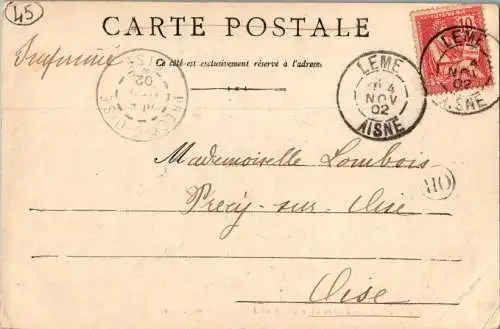 45
CARTE POSTALE
Imprimé
Ce côté est exclusivement réservé à l'adresse
LEME
4
NOV
02
AISNE
10
LEME
4
NOV
02
AISNE
PRECY-S-OISE
02
OR
Mademoiselle Lombois
Précy-sur-Oise
Oise